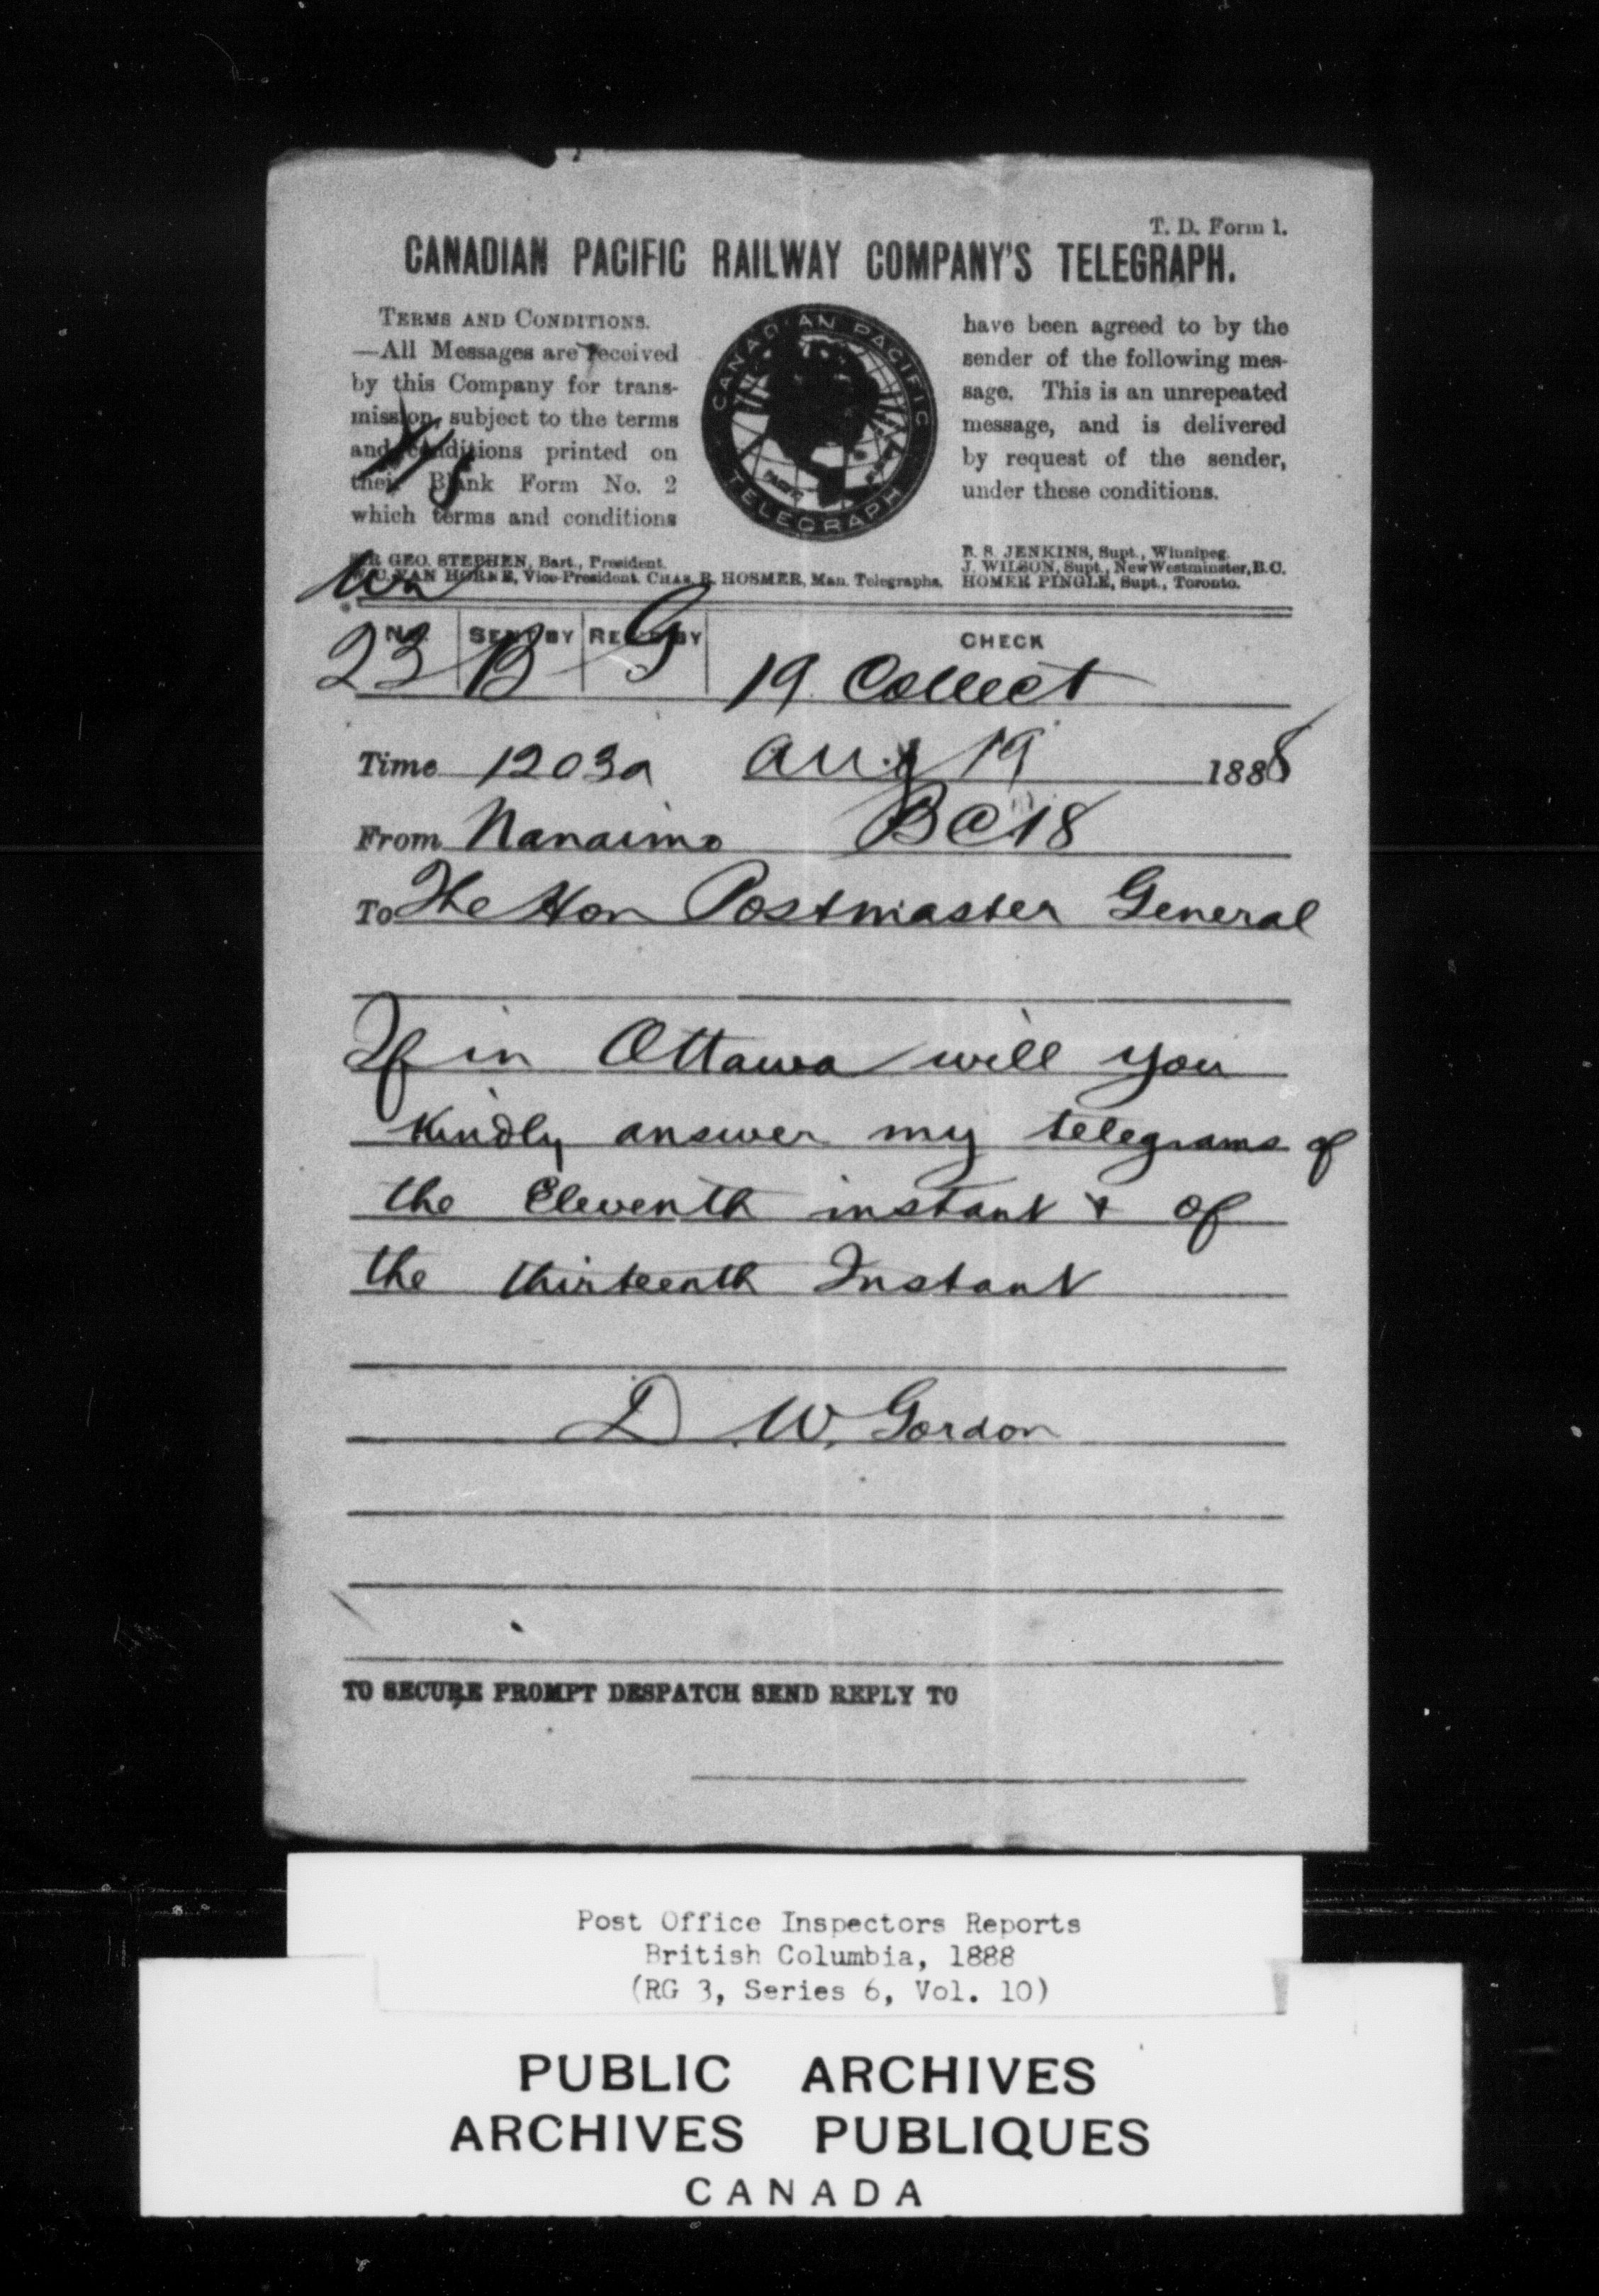 T. D. Form 1.
CANADIAN PACIFIC RAILWAY COMPANY'S TELEGRAPH.
TERMS AND CONDITIONS.
—All Messages are received
by this Company for trans-
mission, subject to the terms
and conditions printed on
their Blank Form No. 2
which terms and conditions
CANADIAN PACIFIC
TELEGRAPH
have been agreed to by the
sender of the following mes-
sage. This is an unrepeated
message, and is delivered
by request of the sender,
under these conditions.
SIR GEO. STEPHEN, Bart., President.
W. C. VAN HORNE, Vice-President. CHAS. R. HOSMER, Man. Telegraphs.
B. S. JENKINS, Supt., Winnipeg.
J. WILSON, Supt., New Westminster, B.C.
HOMER PINGLE, Supt., Toronto.
No. SENT BY REC'D BY CHECK
23 B G 19 Collect
Time 1203a Aug 19 1888
From Nanaimo BC 18
To The Hon Postmaster General
If in Ottawa will you
kindly answer my telegrams of
the Eleventh instant & of
the thirteenth Instant
D. W. Gordon
TO SECURE PROMPT DESPATCH SEND REPLY TO
Post Office Inspectors Reports
British Columbia, 1888
(RG 3, Series 6, Vol. 10)
PUBLIC ARCHIVES
ARCHIVES PUBLIQUES
CANADA